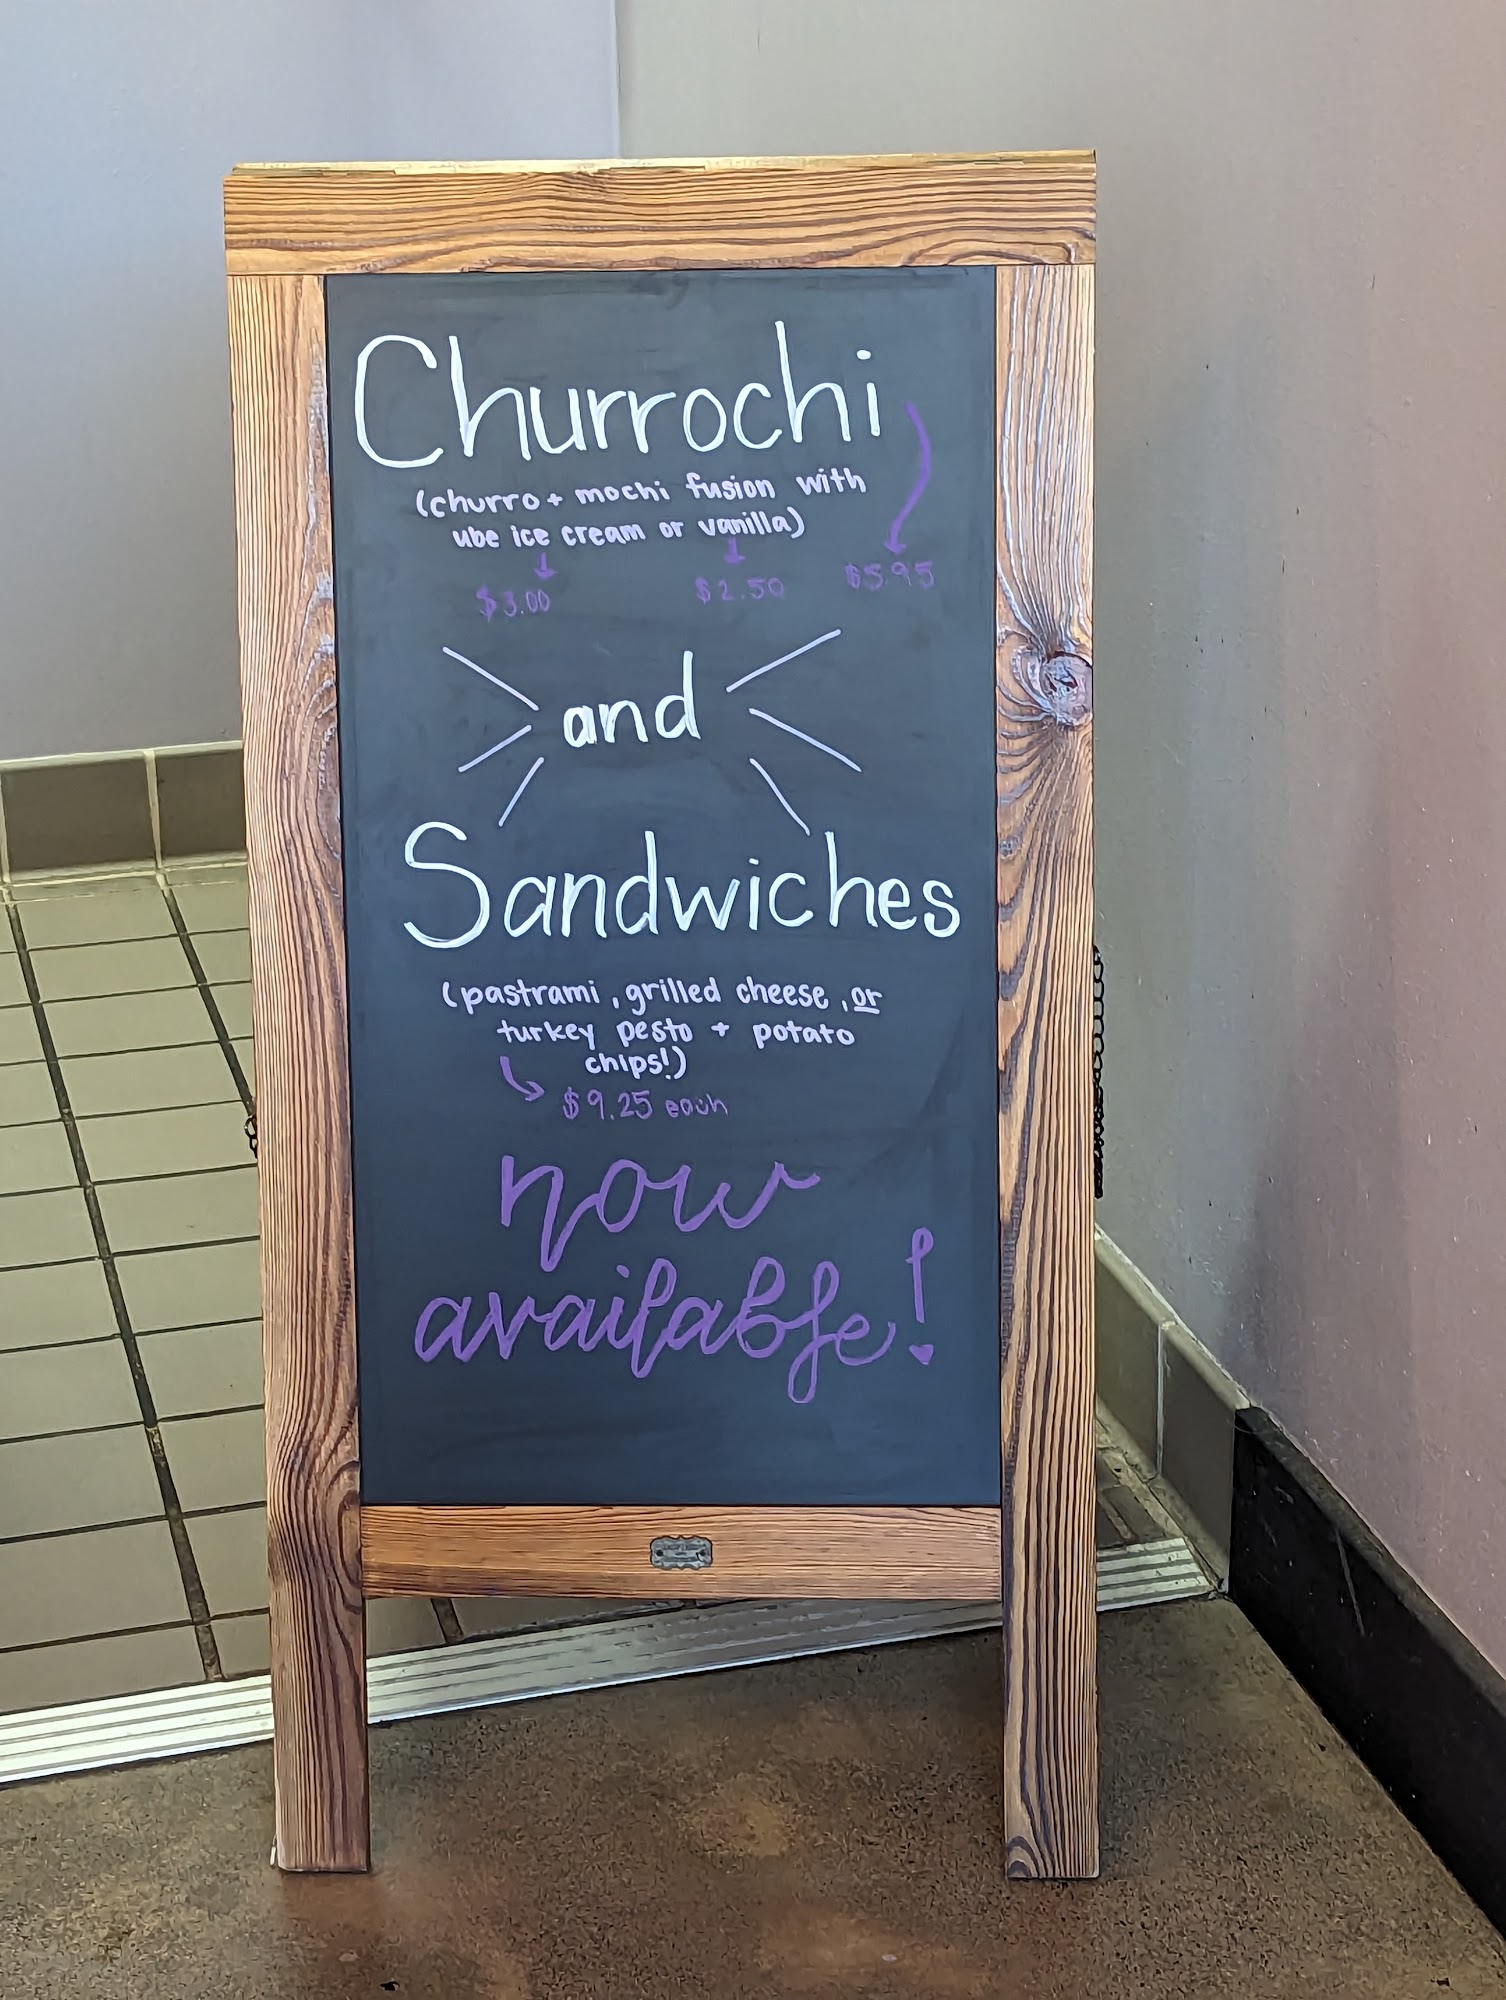 Churrochi
(churro + mochi fusion with
ube ice cream or vanilla)
$3.00 $2.50 $5.95
and
Sandwiches
(pastrami, grilled cheese, or
turkey pesto + potato
chips!)
$9.25 each
now
available!